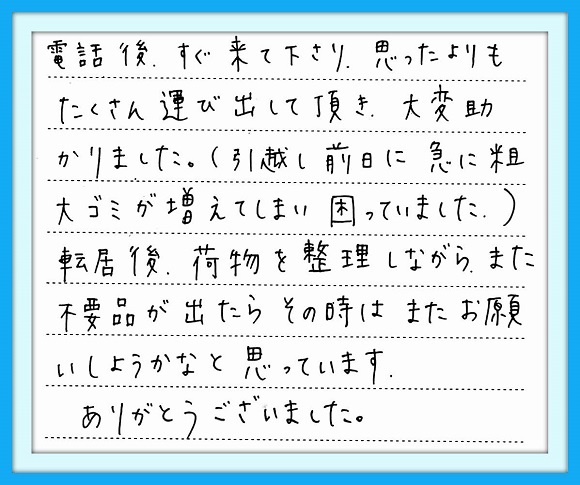 電話後、すぐ来て下さり、思ったよりも
たくさん運び出して頂き、大変助
かりました。(引越し前日に急に粗
大ゴミが増えてしまい困っていました.)
転居後、荷物を整理しながら、また
不要品が出たらその時はまたお願
いしようかなと思っています.
ありがとうございました。